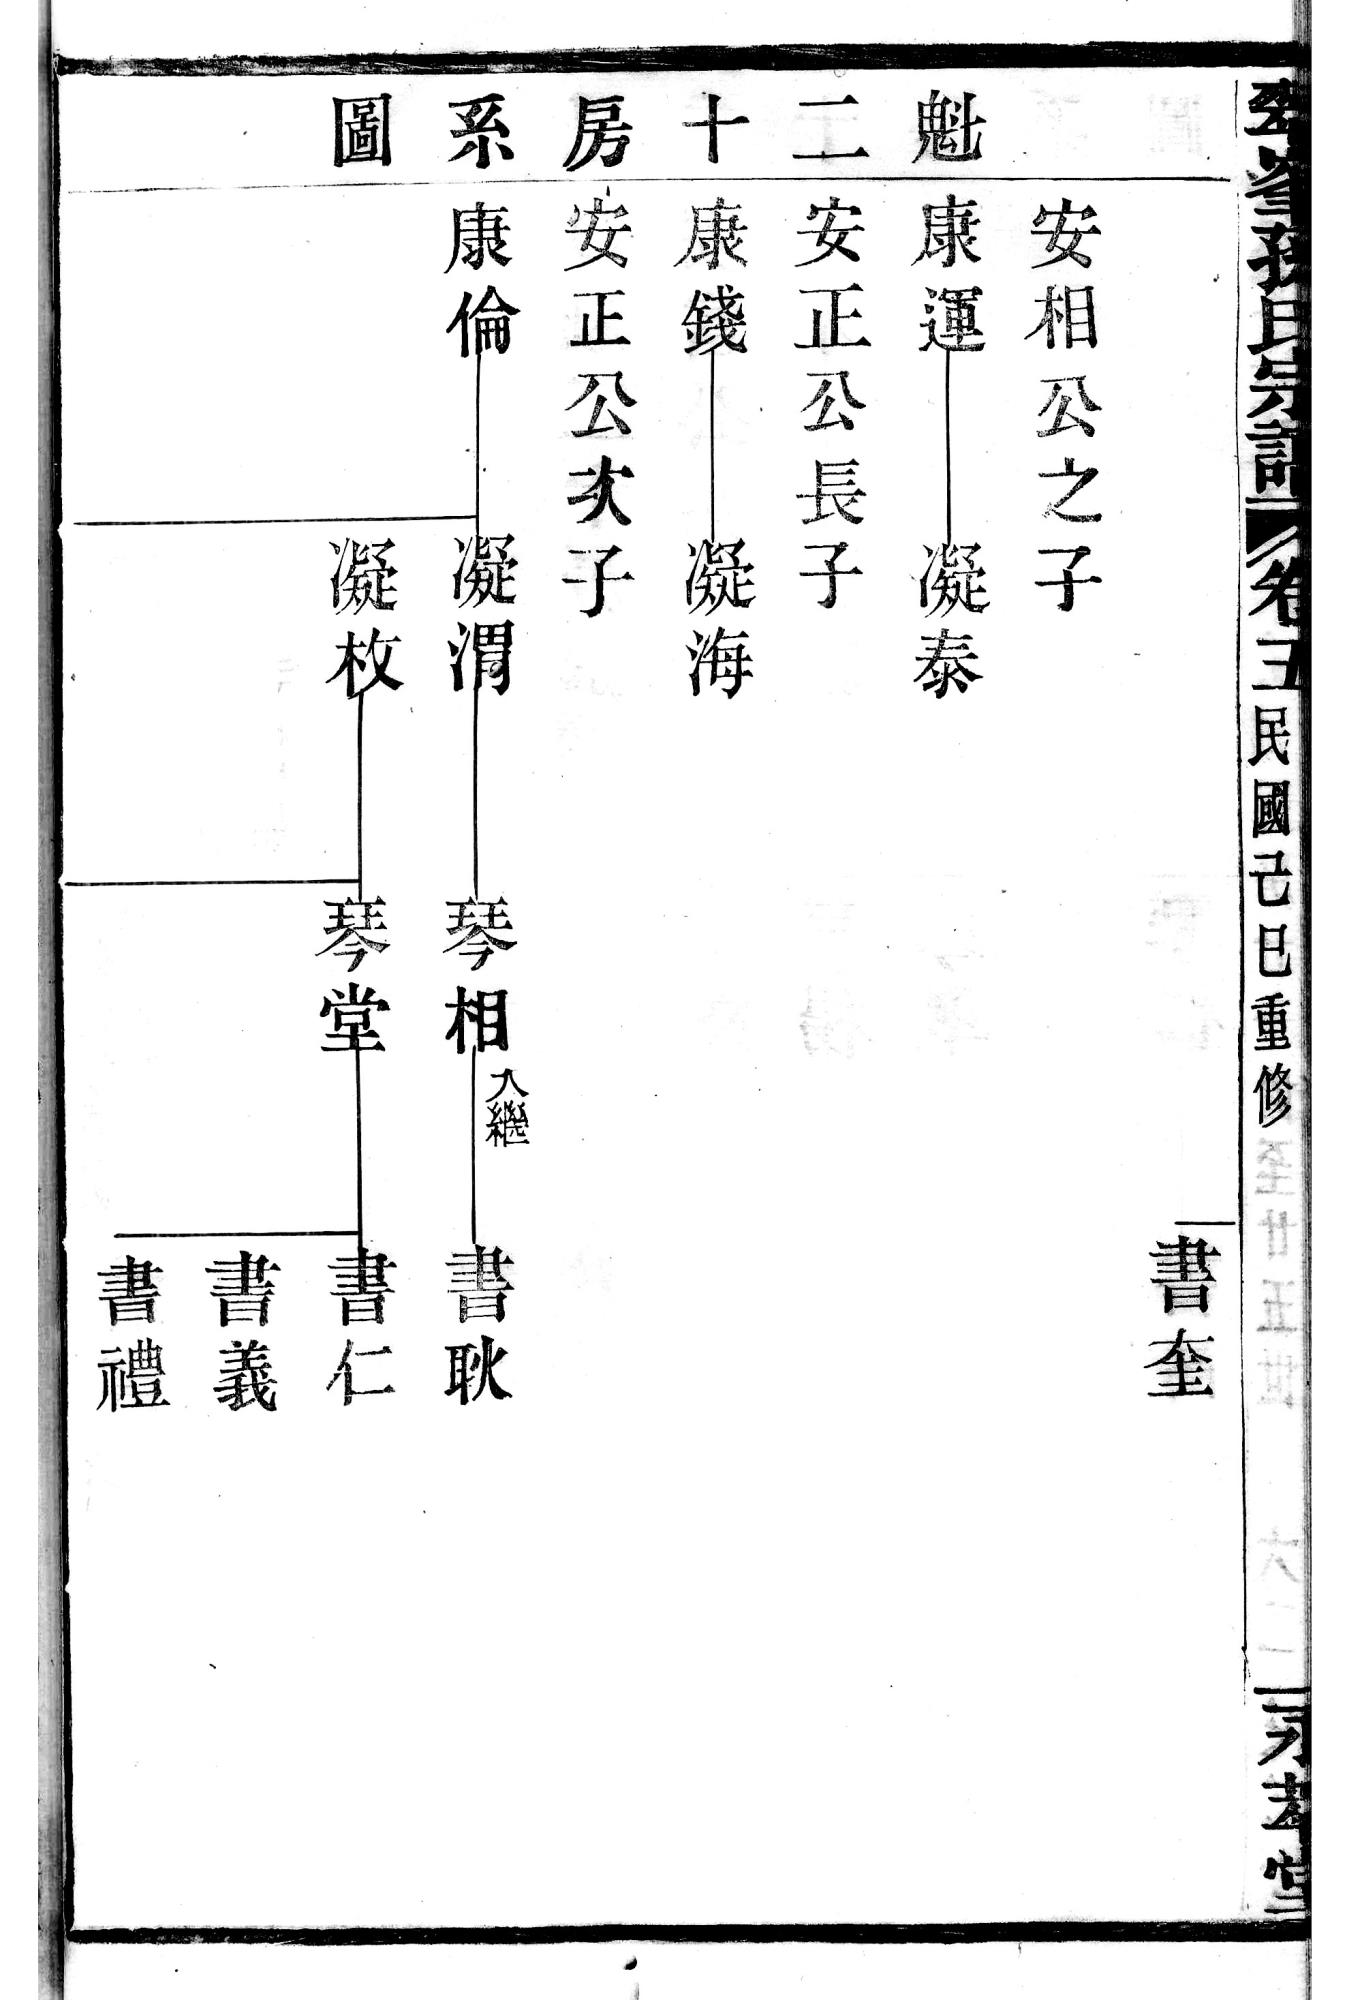 孫氏宗譜
卷五
民國己巳重修
堂
魁二十房系圖
書奎
安相公之子
康運
凝泰
安正公長子
康錢
凝海
安正公次子
康倫
凝渭
琴相
入繼
書耿
凝枚
琴堂
書仁
書義
書禮